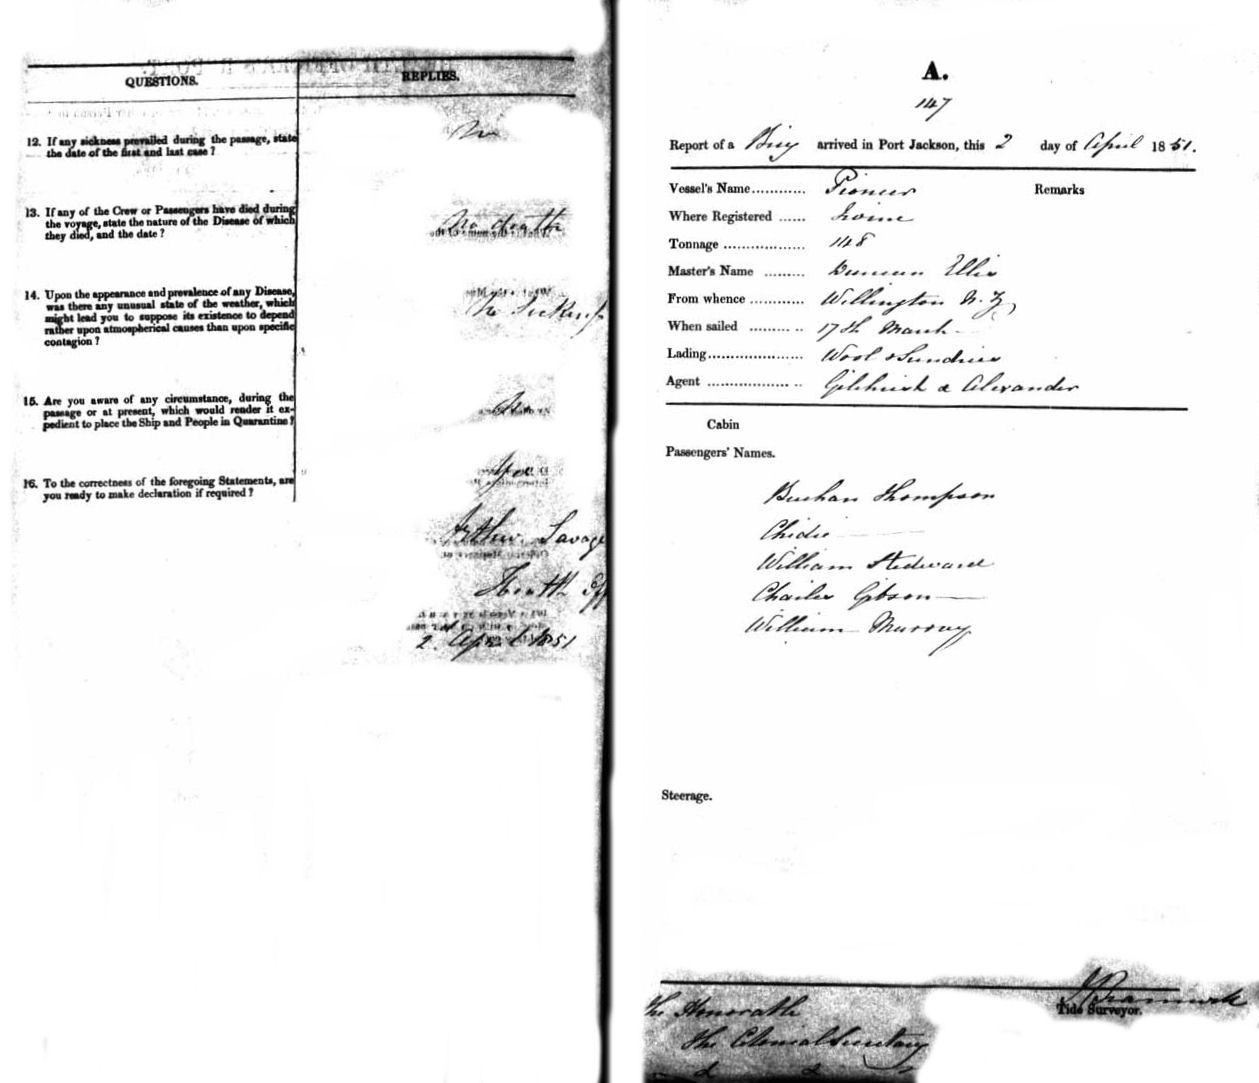 QUESTIONS.
REPLIES.
12. If any sickness prevailed during the passage, state
the date of the first and last case ?
No
13. If any of the Crew or Passengers have died during
the voyage, state the nature of the Disease of which
they died, and the date ?
No death
14. Upon the appearance and prevalence of any Disease,
was there any unusual state of the weather, which
might lead you to suppose its existence to depend
rather upon atmospherical causes than upon specific
contagion ?
No Sickness
15. Are you aware of any circumstance, during the
passage or at present, which would render it ex-
pedient to place the Ship and People in Quarantine ?
No
16. To the correctness of the foregoing Statements, are
you ready to make declaration if required ?
Yes
Arthur Savage
Health Off
2d April 1851
A.
147
Report of a Brig arrived in Port Jackson, this 2 day of April 1851.
Vessel's Name............ Pioneer
Remarks
Where Registered ......
Tonnage .................. 148
Master's Name ......... Duncan Ellis
From whence ............ Wellington N. Z
When sailed ......... .. 17th March
Lading...................... Wool & Sundries
Agent .................. .. Gilchrist & Alexander
Cabin
Passengers' Names.
Buchan Thompson
William Stedward
Charles Gibson
William Murray
Steerage.
Tide Surveyor.
The Honorable
The Colonial Secretary